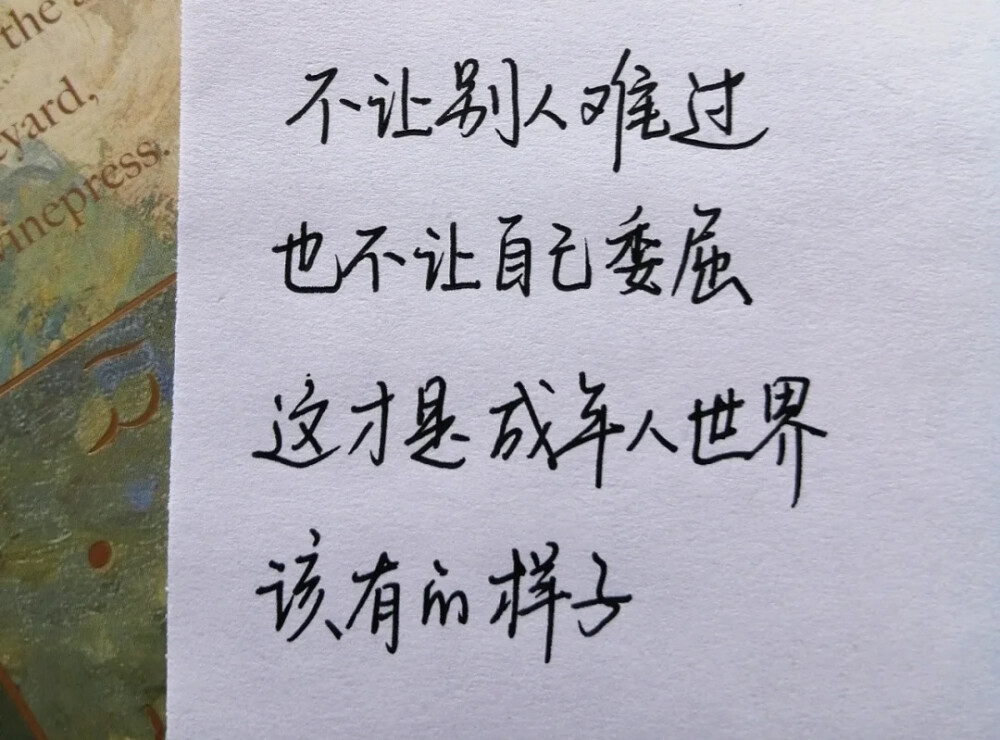 the
eyard,
inepress.
不让别人难过
也不让自己委屈
这才是成年人世界
该有的样子